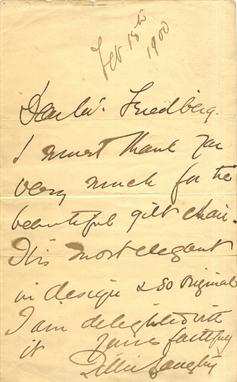 Feb 15th
1900
Dear Mr. Friedberg.
I must thank you
very much for the
beautiful gilt chair.
It is most elegant
in design & so original
I am delighted with
it yours faithfully
Lillie Langtry